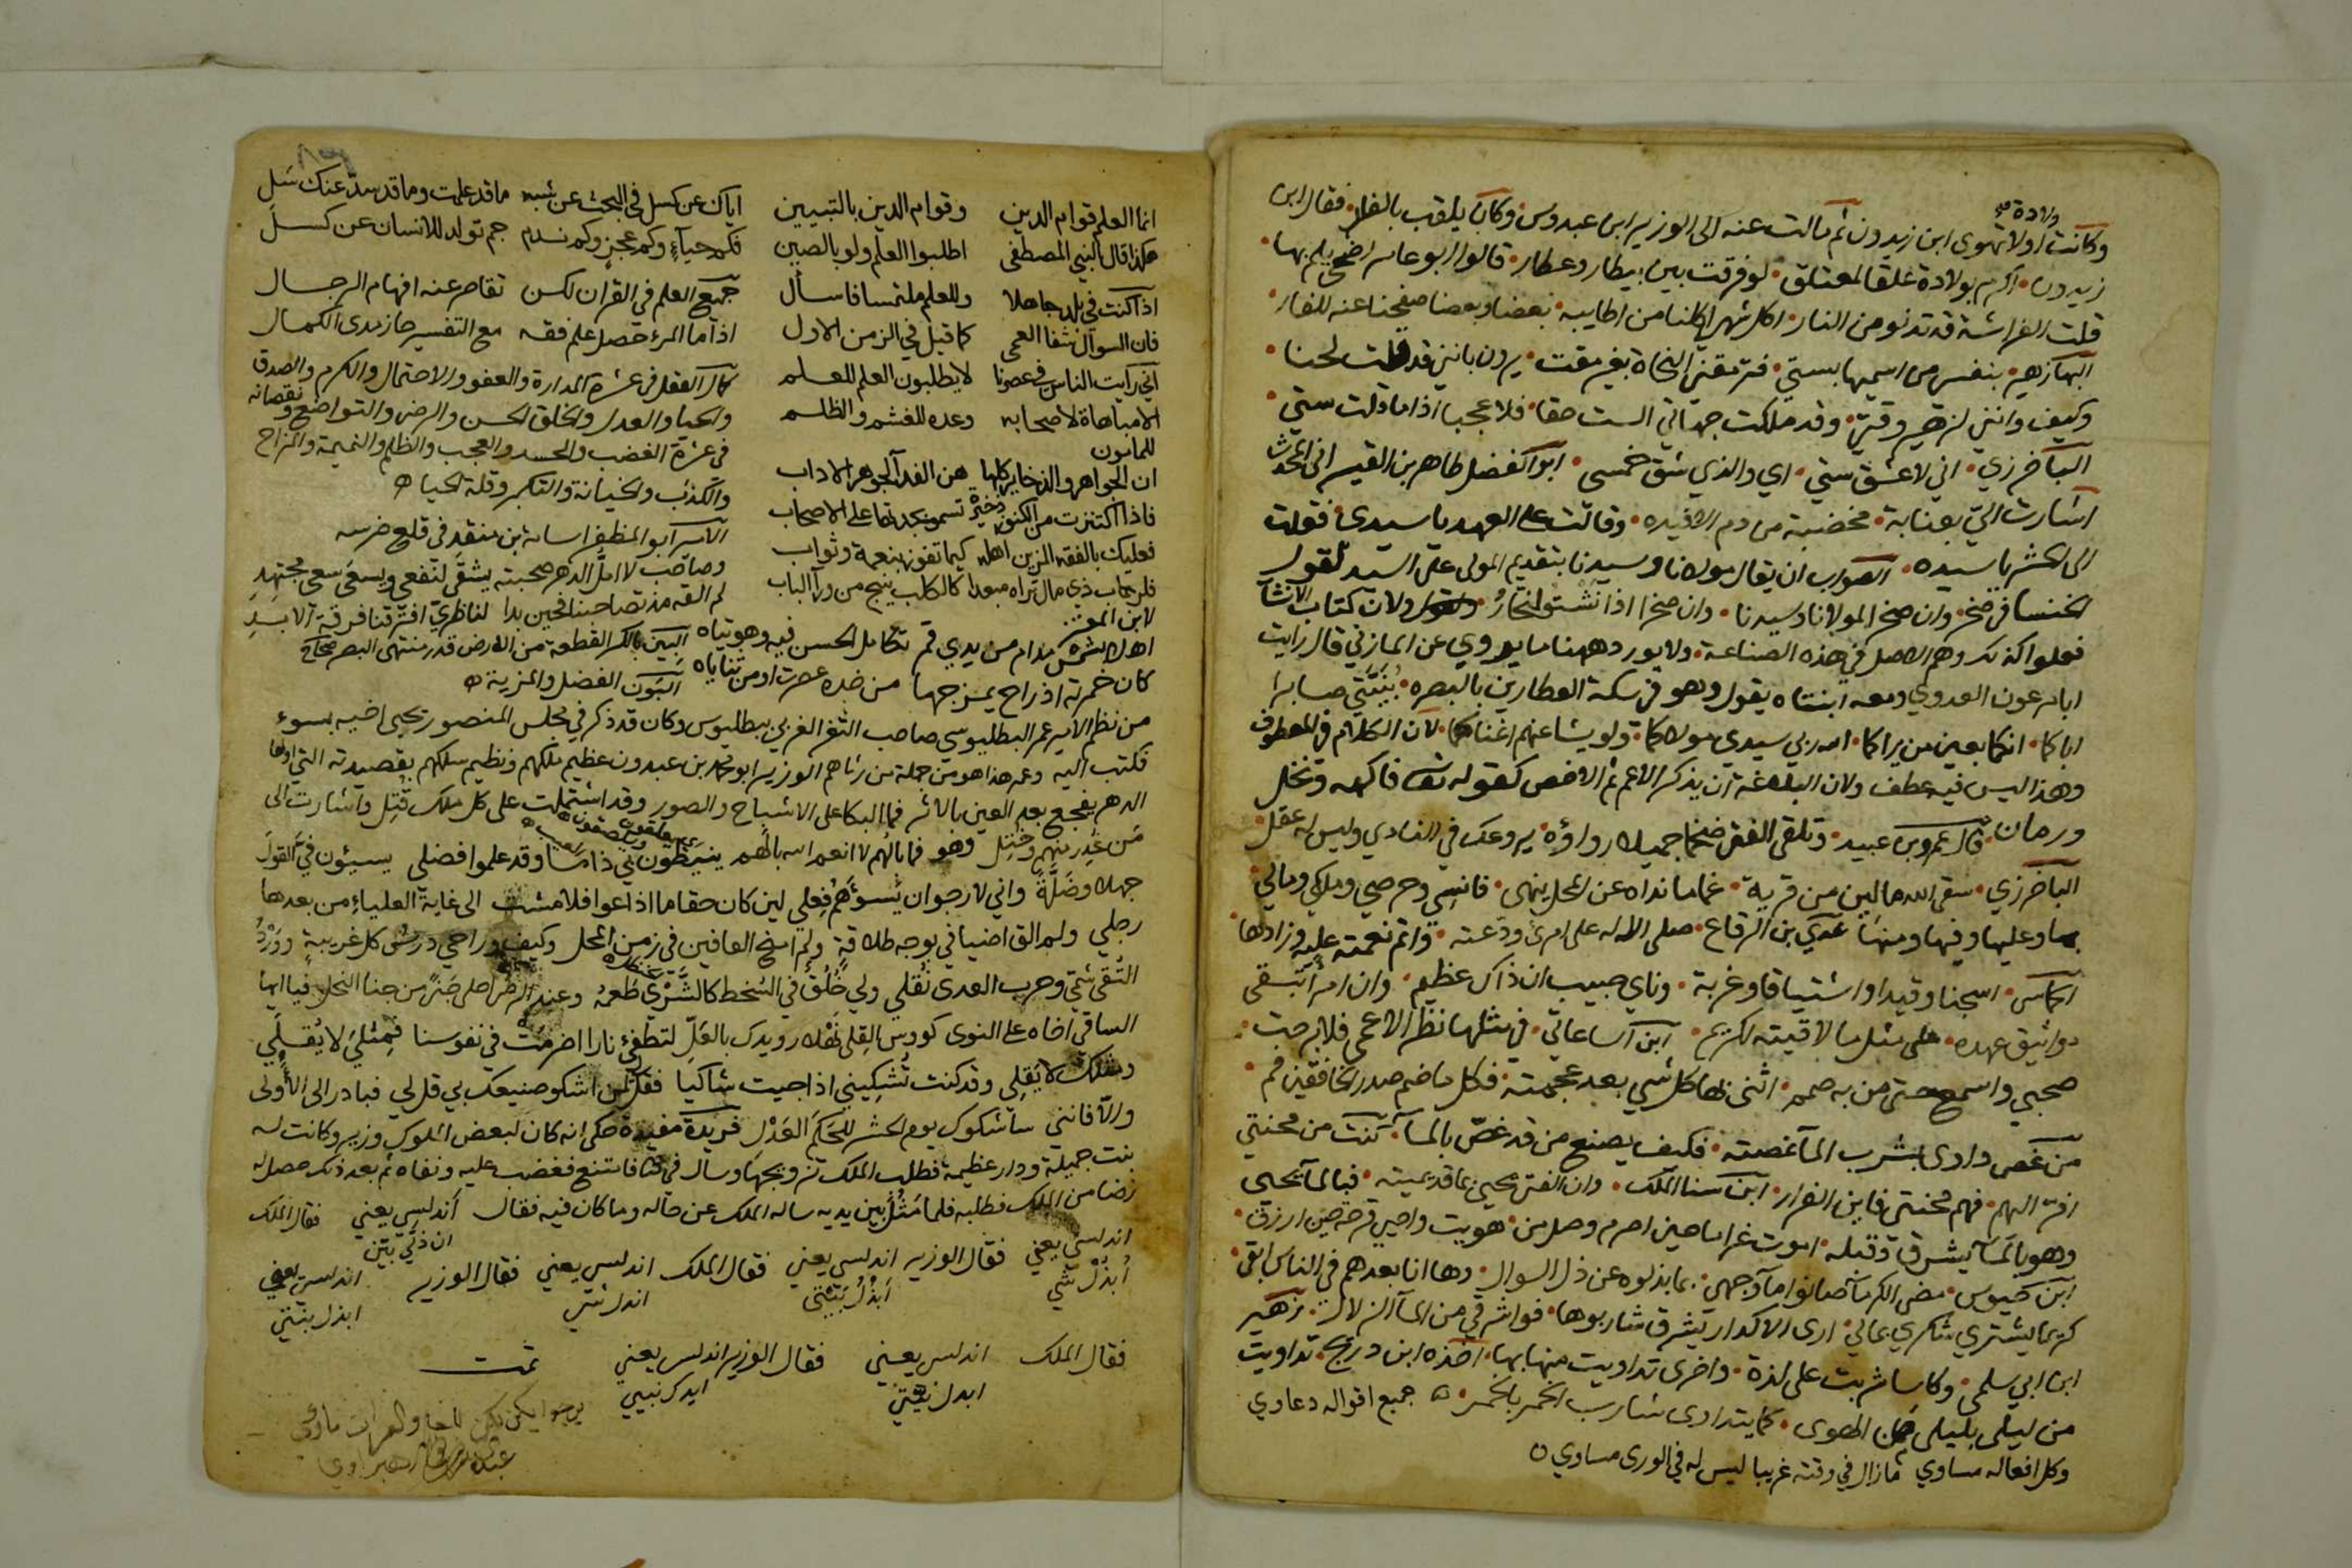 وكانت اولا تهوى ابن زيدون ثم مالت عنه الى الوزير ابن عبدوس وكان يلقب بالفار فقال ابن
ولادة
زيدون اكرم بولادة علقا لمعتلق لو فرقت بين بيطار وعطار قالوا ابو عامر اضحى يلم بها
قلت الفراشة قد تدنو من النار اكل شهي اكلنا من اطايبه بعضا وبعضا صفحنا عنه للفار
البها زهير بنفسي من اسميها بستي فترمقني النحاة بعين مقت يرون بانني قد قلت لحنا
وكيف وانني لزهير وقتي وقد ملكت جهاتي الست حقا فلا عجبا اذا ما قلت ستي
الباخرزي اني لاعشق ستي اي والذي شق خمسي ابو الفضل طاهر بن القيسراني المحدث
اشارت الي بعنابة مخضبة من دم الافيده وقالت على العهد يا سيدي فقلت
الى الحشر يا سيده الصواب ان يقال مولانا وسيدنا بتقديم المولى على السيد لقول
الخنسا في صخر وان صخرا لمولانا وسيدنا وان صخرا اذا نشتو لنحار ولان كتاب الانشا
فعلوا كذلك وهم الاصل في هذه الصناعة ولا يورد ههنا ما يروي عن المازني قال رايت
ابا عون العدوي ومعه ابنتاه يقول وهو في سكة العطارين بالبصره بنيتي صابرا
اباكما انكما بعين من يراكما الله ربي سيدي مولاكما ولو يشا عنهم اغناكما لان الكلام في المعطوف
وهذا ليس فيه عطف ولان البلاغة ان يذكر الاعم ثم الاخص كقوله تعالى فاكهة ونخل
ورمان قال عمرو بن عبيد وتلقى الفتى ضخما جميلا رواؤه يروعك في النادي وليس له عقل
الباخرزي سقى الله مالين من قرية غماما نداه عن المحل ينهى فانسي وحرصي وملكي ومالي
بها وعليها وفيها ومنها عدي بن الرقاع صلى الاله على امرئ ودعته واتم نعمته عليه وزادها
الحماسي اسجنا وقيدا واشتياقا وغربة وناي حبيب ان ذا لعظيم وان امرأ تبقى
مواثيق عهده على مثل ما لاقيته لكريم ابن الساعاتي في مثلها نظر الاعمى فلا برحت
صحبي واسمع حتى من به صمم اثنى بها كل شي بعد عجمته فكل ما ضم صدر الخافقين فم
من غص داوى بشرب الما غصته فكيف يصنع من قد غص بالما كنت من محنتي
افر اليهم فهم محنتي فاين الفرار ابن سنا الملك وان الفتى محيى بما قد يميته فبالما يحيى
وهو بالما يشرق وقبله اموت غراما حين احرم وصل من هويت واحيى فرحه حين ارزق
ابن حيوس مضى الكرما صانوا ما وجهي بما بذلوه عن ذل السوال وها انا بعدهم في الناس ابقى
كريما يشتري شكري بمالي ارى الاكدار يشرق شاربوها فوا شرقي من الما الزلال زهير
ابن ابي سلمى وكاسا شربت على لذة واخرى تداويت منها بها اخذه ابن دريج تداويت
من ليلى بليلى من الهوى كما يتداوى شارب الخمر بالخمر جميع اقواله دعاوي
وكل افعاله مساوي ما زال في وقته غريبا ليس له في الورى مساوي
انما العلم قوام الدين وقوام الدين بالتبيين
هكذا قال النبي المصطفى اطلبوا العلم ولو بالصين
اذا كنت في بلد جاهلا وللعلم ملتمسا فاسأل
فان السوال شفا العمى كما قيل في الزمن الاول
اني رايت الناس في عصرنا لا يطلبون العلم للعلم
الا مباهاة لاصحابه وعده للغشم والظلم
للمامون
ان الجواهر والذخاير كلها هن الفدا لجوهر الاداب
فاذا اكتنزت من الكنوز ذخيرة تسمو بجدتها على الاصحاب
فعليك بالفقه المزين اهله كيما تفوز بنعمة وثواب
فلرب ذي مال تراه مبعدا كالكلب ينبح من ورآ الباب
لابن المعتز
كان خمرته اذ راح يمزجها من خده عصرت او من ثناياه
اياك عن كسل في البحث عن شبه ما قد علمت وما قد سد عنك سل
فكم حيآء وكم عجز وكم ندم جم تولد للانسان عن كسل
جميع العلم في القران لكن تقاصر عنه افهام الرجال
اذا ما المرء حصل علم فقه مع التفسير حاز مدى الكمال
كمال العقل في عشرة المدارة والعفو والاحتمال والكرم والصدق
والحيا والعدل والخلق الحسن والرضى والتواضع ونقصانه
في عشرة الغضب والحسد والعجب والظلم والنميمة والمزاح
والكذب والخيانة والتكبر وقلة الحيا
الامير ابو المظفر اسامة بن منقذ في قلع ضرسه
وصاحب لا امل الدهر صحبته يشقى لنفعي ويسعى سعي مجتهد
لم القه مذ تصاحبنا فحين بدا لناظري افترقنا فرقة الابد
البين بالكسر القطعة من الارض قدر منتهى البصر صحاح
البون الفضل والمزية
من نظم الامير عمر البطليوسي صاحب الثغر الغربي ببطليوس وكان قد ذكر في مجلس المنصور يحيى اخيه بسوء
فكتب اليه وعمر هذا هو من جملة من رثاهم الوزير ابو محمد بن عبدون عظيم ملكهم ونظيم سلكهم بقصيدته التي اولها
الدهر يفجع بعد العين بالاثر فما البكا على الاشباح والصور وقد اشتملت على كل ملك قتل واشارت الى
من غدر منهم وختل وهو فما بالهم لا انعم الله بالهم ينيطون بي ذما وقد علموا فضلي يسيئون في القول
جهلا وضلة واني لارجوا ان يسوءهم فعلي لين كان حقا ما اذاعوا فلا مشت الى غاية العلياء من بعدها
رجلي ولم الق اضيافي بوجه طلاقة ولم امنح العافين في زمن المحل وكيف وراحي درس كل غريبة وورد
التقى شمي وحرب العدى نقلي ولي خلق في السخط كالشري طعمه وعند الرضى احلى جنى من جنا النحل فيا ايها
الساقي اخاه على النوى كووس القلى مهلا رويدك بالعل لتطفئ نارا اضرمت في نفوسنا فمثلي لا يقلي
ومثلك لا يقلي وقد كنت تشكيني اذا جيت شاكيا فقل لي لمن اشكو صنيعك بي قل لي فبادر الى الاولى
والا فانني ساشكوك يوم الحشر للحكم العدل فريدة مفيدة حكى انه كان لبعض الملوك وزير وكانت له
بنت جميلة ودار عظيمة فطلب الملك تزويجها فامتنع فغضب عليه ونفاه ثم بعد ذلك حصل له
رضا من الملك فطلبه فلما مثل بين يديه ساله الملك عن حاله وما كان فيه فقال اندلسي يعني فقال الملك
اندلسي يعني فقال الوزير اندلسي يعني فقال الملك اندلسي يعني فقال الوزير اندلسي يعني
فقال الملك اندلسي يعني فقال الوزير اندلسي يعني تمت